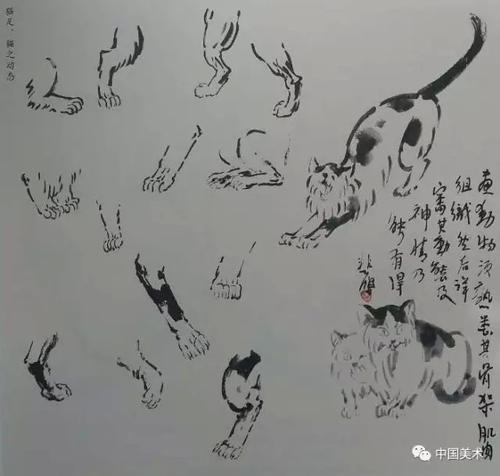 猫足、猫之动态
画動物须熟悉其骨架肌肉
组織然后详
審其動態及
神情乃
能有得
中国美术